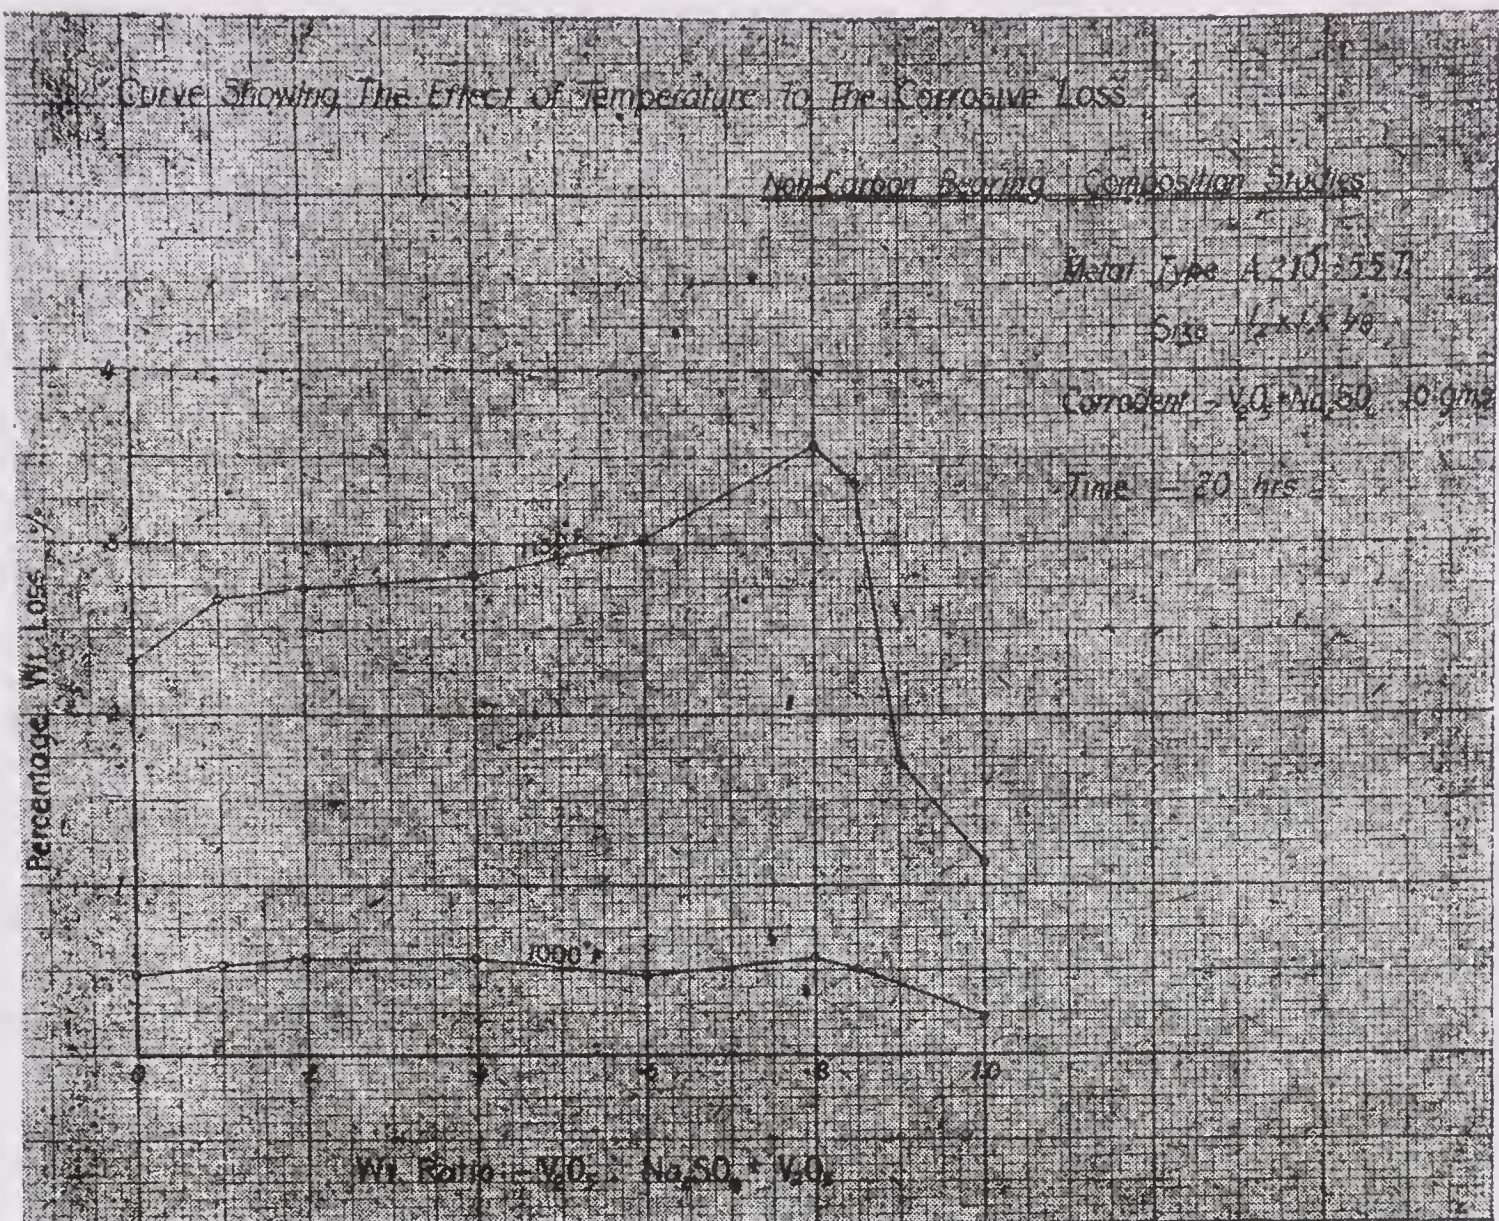 Curve Showing The Effect of Temperature to The Corrosive Loss
Non-Carbon Bearing Composition Studies
Metal Type A 210
Size 1/2 x 1 x 1/8
Corrodent - V₂O₅+Na₂SO₄ 10 gms
Time - 20 hrs
4
3
2
1
Percentage Wt. Loss
1000°F
0
.2
.8
1.0
Wt. Ratio - V₂O₅ Na₂SO₄ + V₂O₅